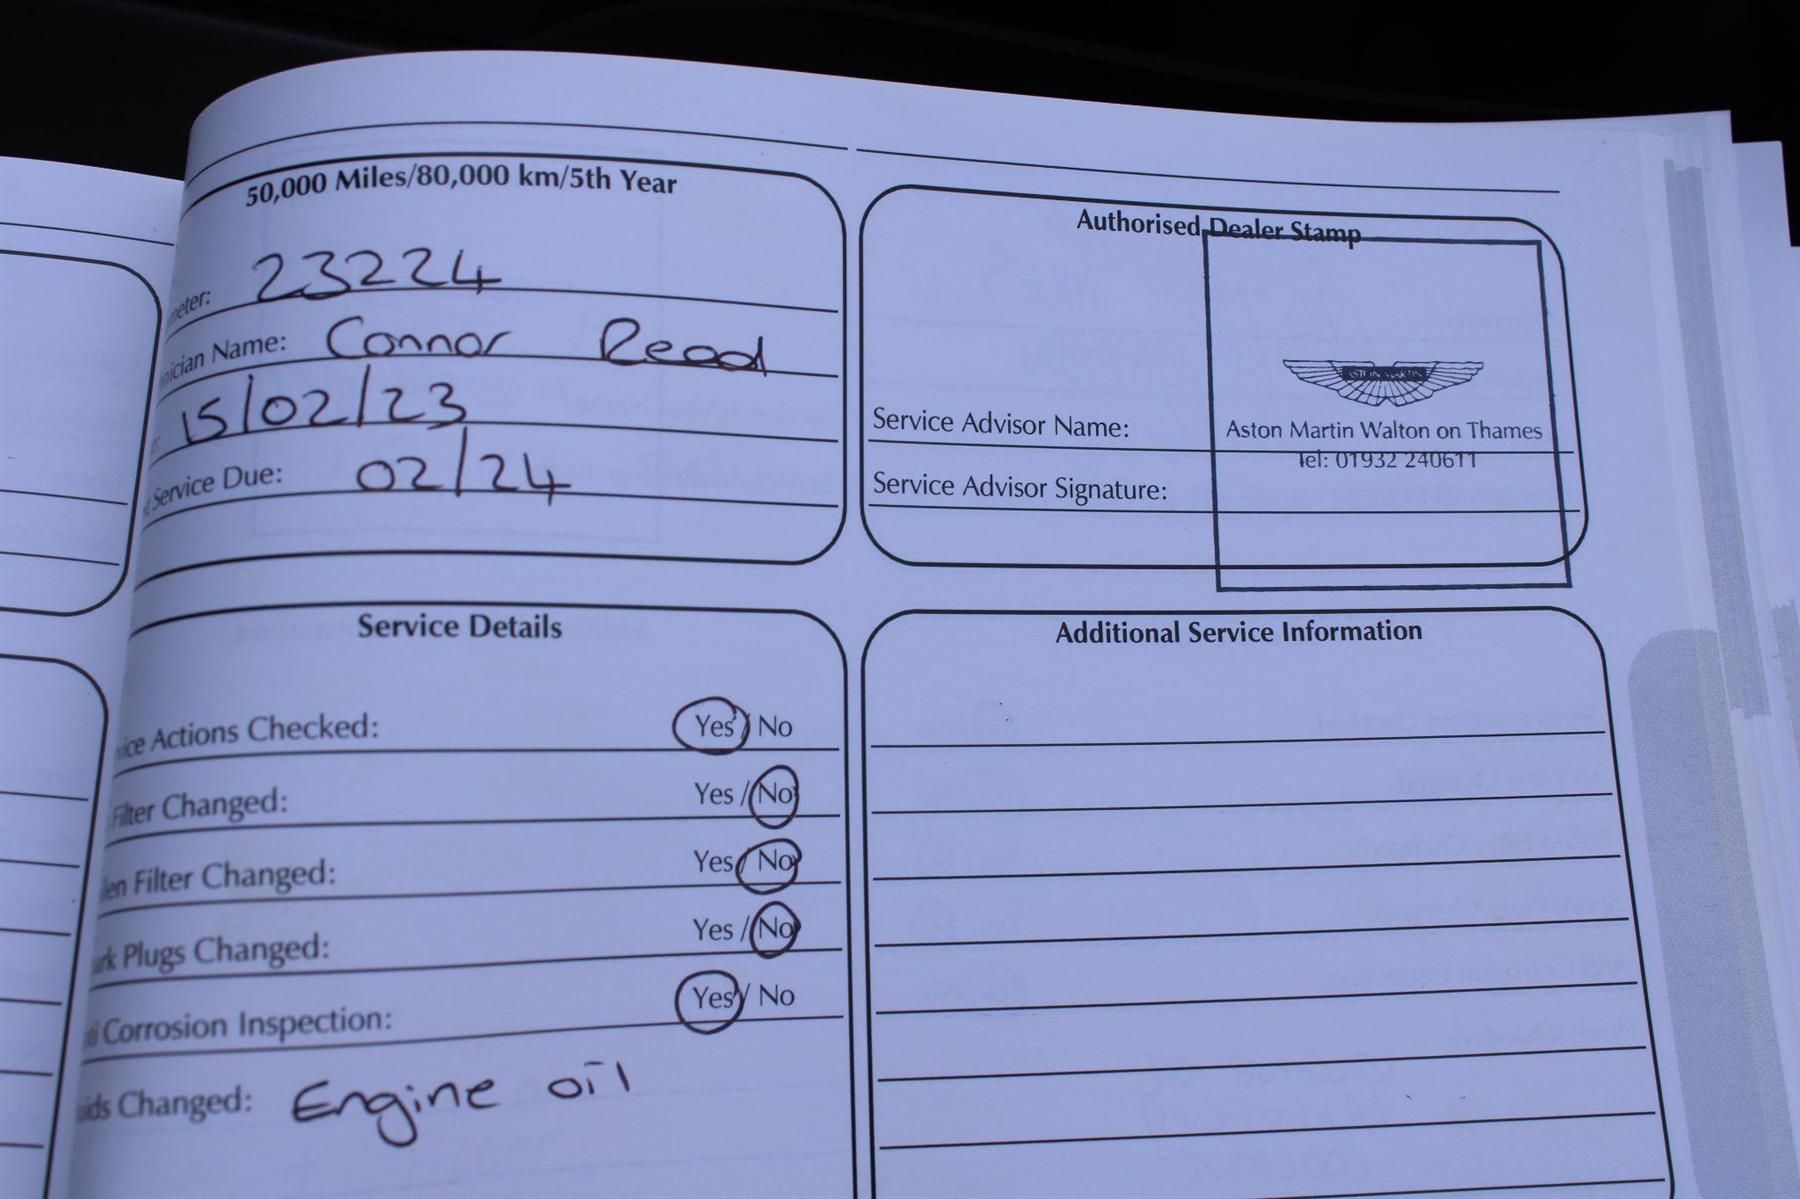 50,000 Miles/80,000 km/5th Year
meter: 23224
nician Name: Connor Read
15/02/23
Service Due: 02/24
Authorised Dealer Stamp
ASTON MARTIN
Service Advisor Name:
Aston Martin Walton on Thames
Tel: 01932 240611
Service Advisor Signature:
Service Details
vice Actions Checked: Yes / No
Filter Changed: Yes / No
len Filter Changed: Yes / No
ark Plugs Changed: Yes / No
ti Corrosion Inspection: Yes / No
uids Changed: Engine oil
Additional Service Information